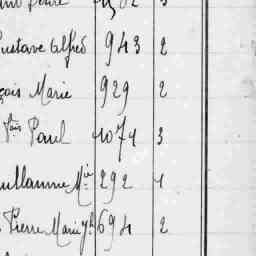 ustave Alfred 943 2
çois Marie 929 2
fois Paul 1074 3
uillaume Mie 292 1
Pierre Marie Jh 694 2